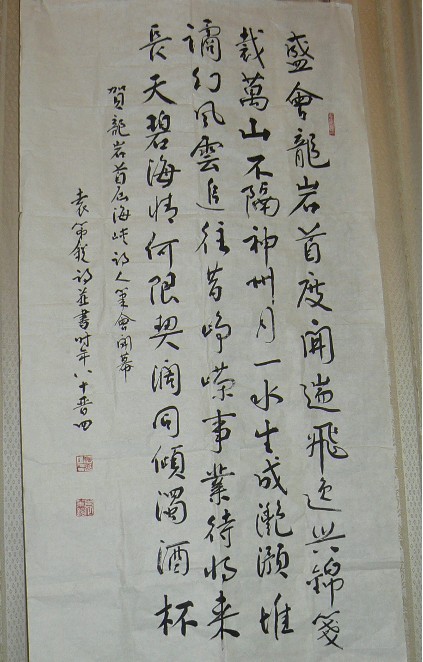 盛會龍岩首度開遄飛逸興錦箋
裁萬山不隔神州月一水生成灧澦堆
譎幻風雲追往昔崢嶸事業待將來
長天碧海情何限契濶同傾濁酒杯
賀龍岩首屆海峽詩人筆會開幕
袁第銳詩並書時年八十晉四